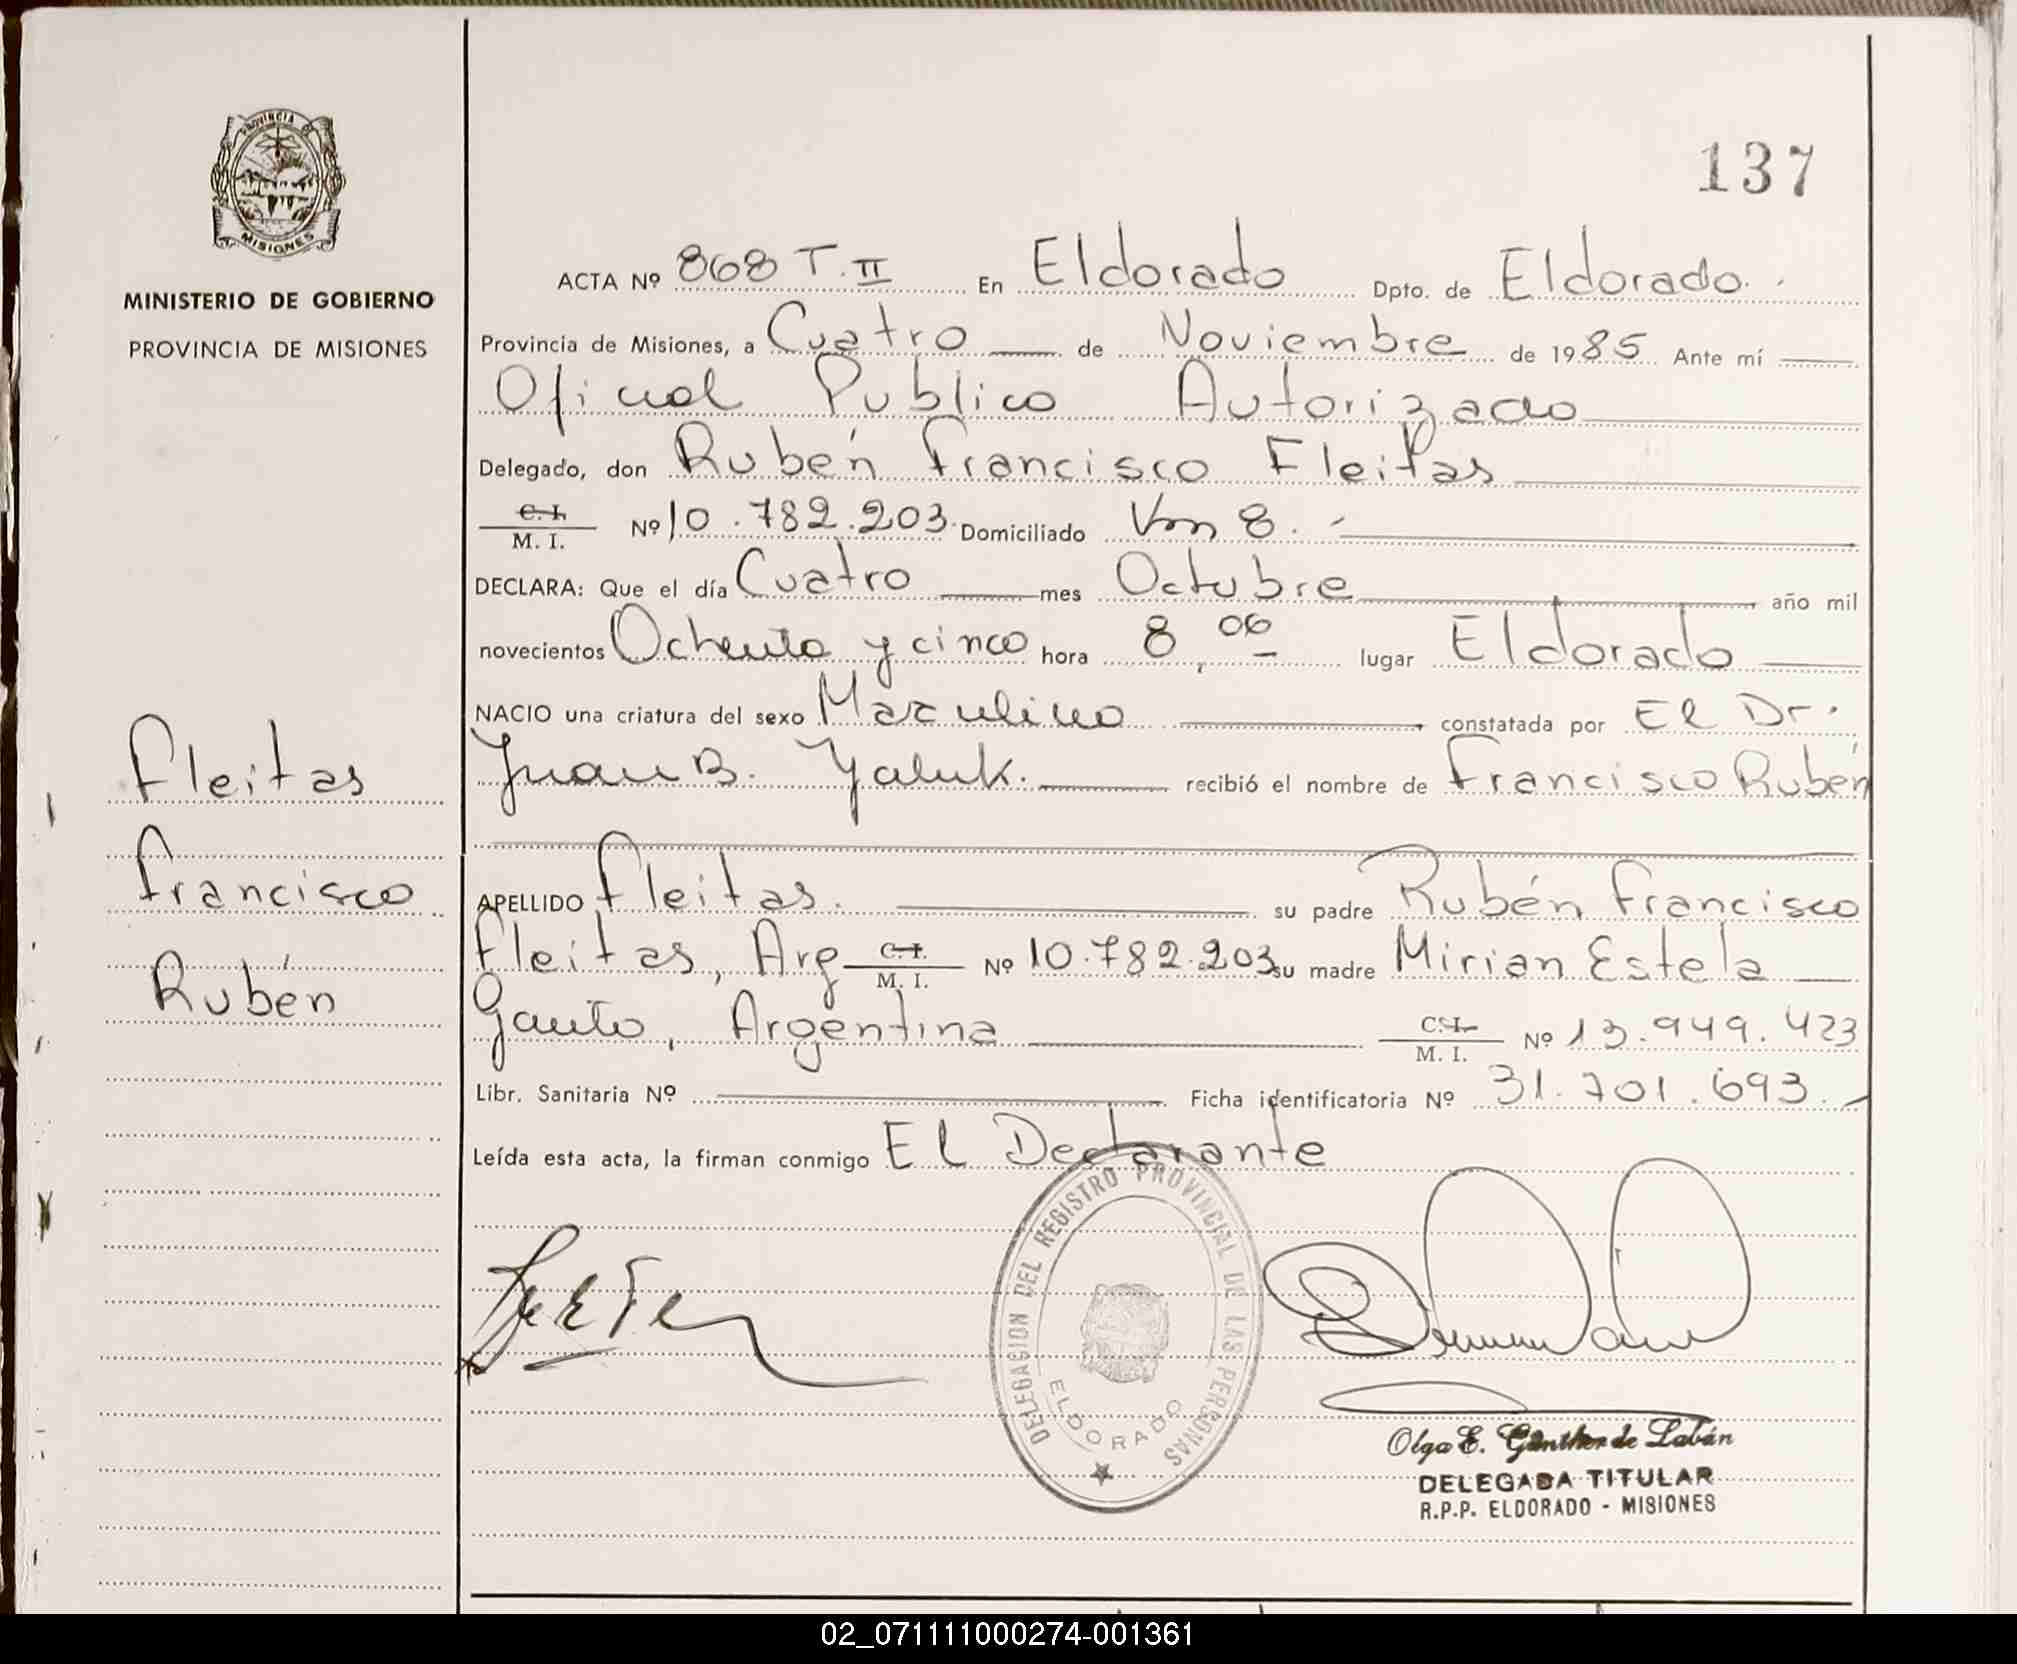 PROVINCIA DE
MISIONES
MINISTERIO DE GOBIERNO
PROVINCIA DE MISIONES
Fleitas
Francisco
Rubén
137
ACTA Nº 868 T. II En Eldorado Dpto. de Eldorado.
Provincia de Misiones, a Cuatro de Noviembre de 1985 Ante mí
Oficial Publico Autorizado
Delegado, don Rubén Francisco Fleitas
C. I. M. I. Nº 10.782.203. Domiciliado Km 8.
DECLARA: Que el día Cuatro mes Octubre año mil
novecientos Ochenta y cinco hora 8,00 lugar Eldorado
NACIO una criatura del sexo Masculino constatada por El Dr.
Juan B. Yaluk. recibió el nombre de Francisco Rubén
APELLIDO Fleitas. su padre Rubén Francisco
Fleitas, Arg C. I. M. I. Nº 10.782.203 su madre Mirian Estela
Gauto, Argentina C. I. M. I. Nº 13.949.423
Libr. Sanitaria Nº Ficha identificatoria Nº 31.701.693.
Leída esta acta, la firman conmigo El Declarante
DELEGACION DEL REGISTRO PROVINCIAL DE LAS PERSONAS
ELDORADO
Olga E. Günther de Labán
DELEGADA TITULAR
R.P.P. ELDORADO - MISIONES
02_071111000274-001361